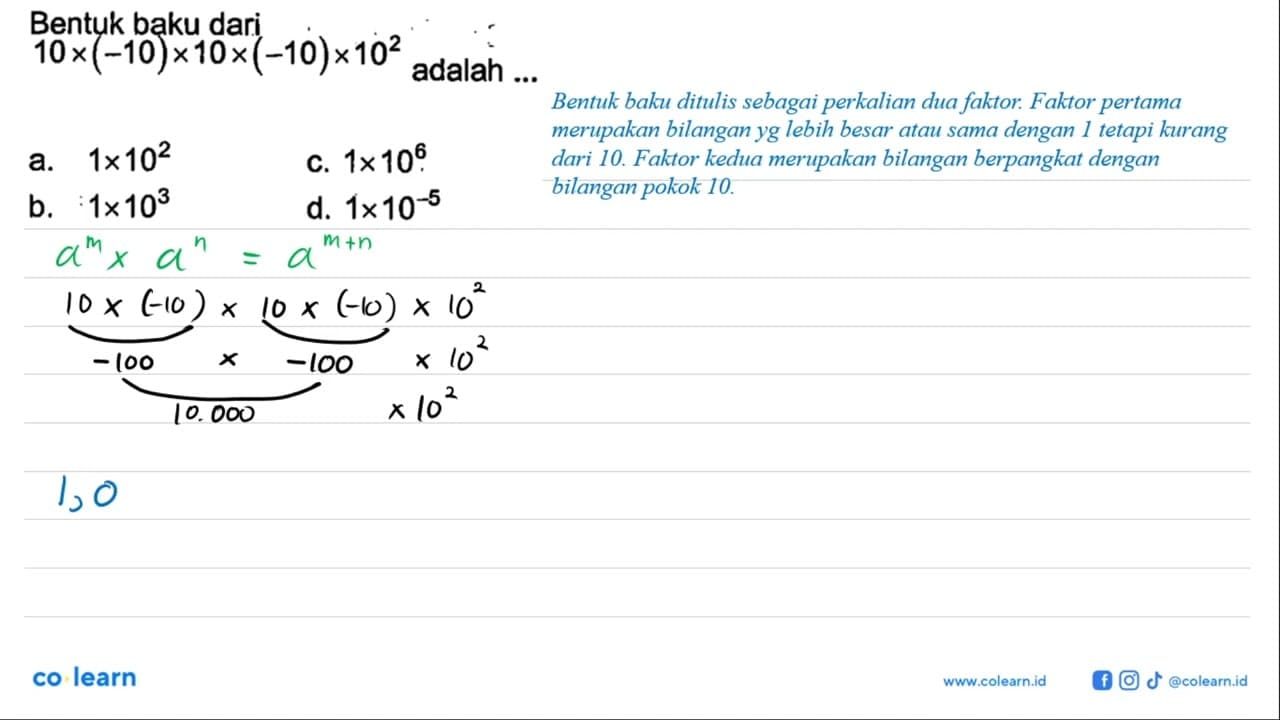 Bentuk baku dari
10×(−10)×10×(−10)×10² adalah ...
Bentuk baku ditulis sebagai perkalian dua faktor. Faktor pertama
merupakan bilangan yg lebih besar atau sama dengan 1 tetapi kurang
dari 10. Faktor kedua merupakan bilangan berpangkat dengan
bilangan pokok 10.
a. 1×10² c. 1×10⁶
b. 1×10³ d. 1×10⁻⁵
aᵐ × aⁿ = aᵐ⁺ⁿ
10 × (-10) × 10 × (-10) × 10²
-100 × -100 × 10²
10.000 × 10²
1,0
co learn
www.colearn.id @colearn.id